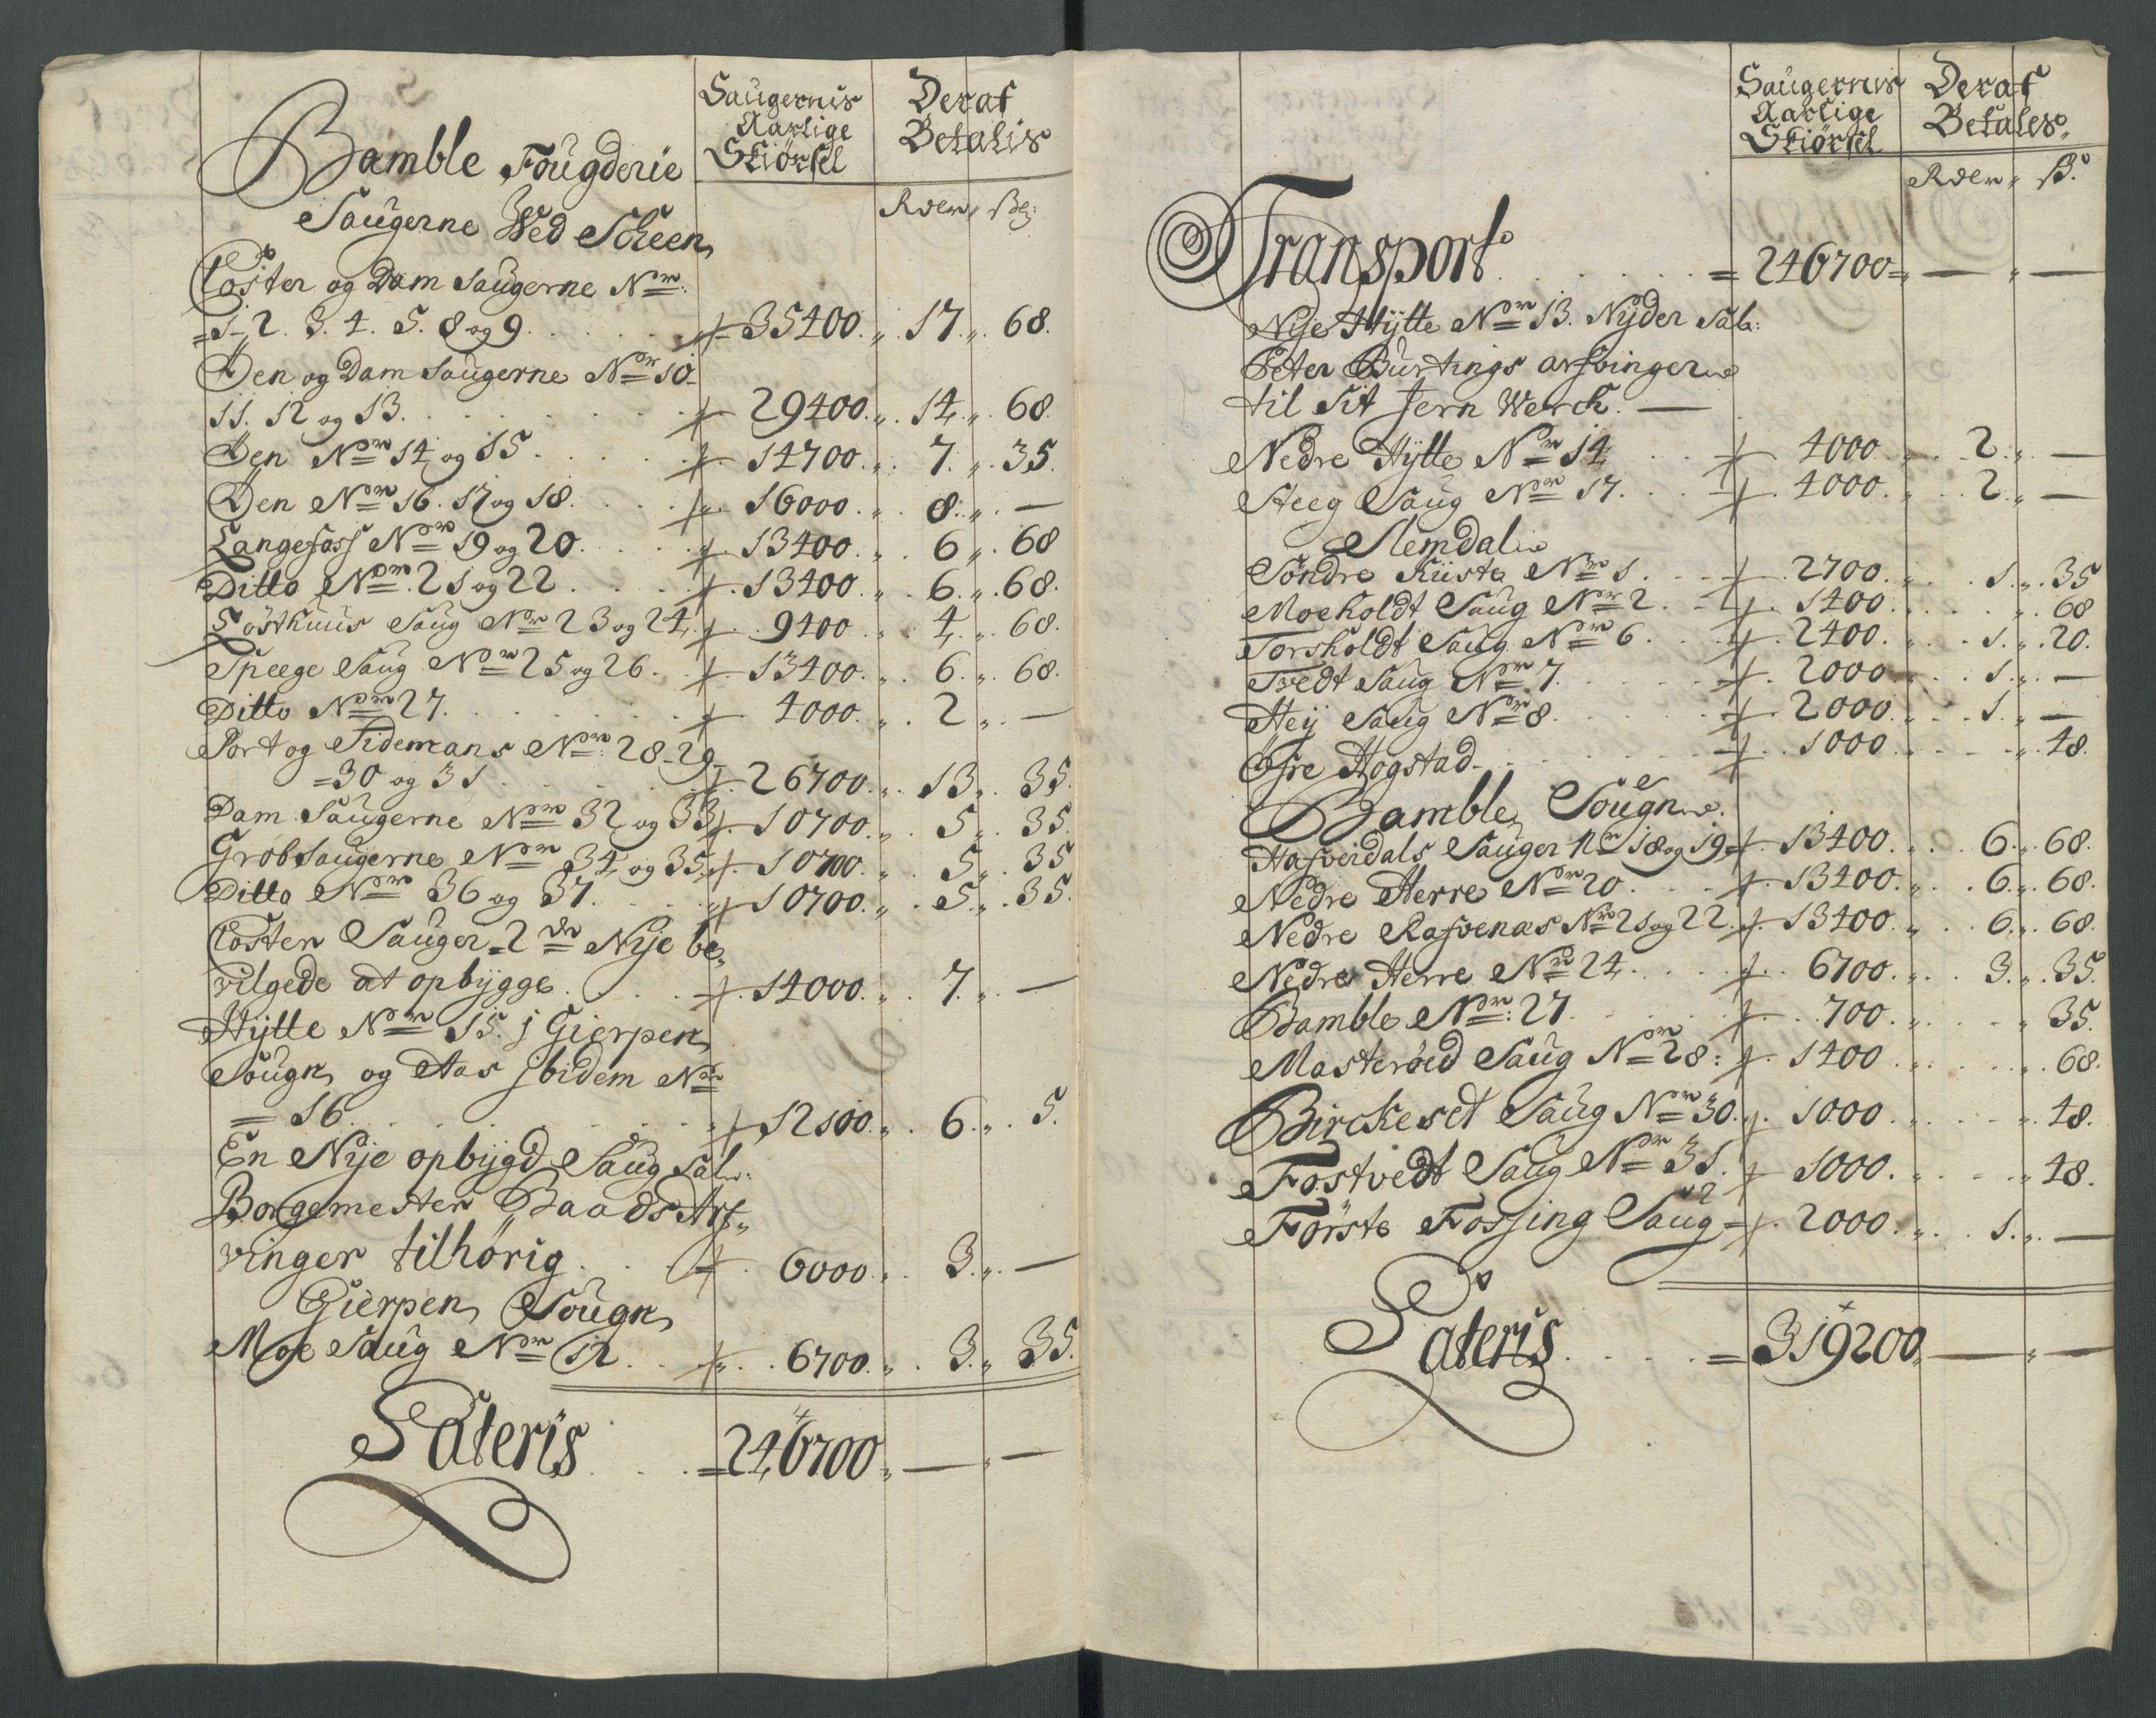 Saugernis Deraf
Aarlige Betalis
Skiörsel
Rder ß
Bamble Fougderie
Saugerne Wed Scheen
Closter og Dam Saugerne Nr:
1. 2. 3. 4. 5. 8 og 9 . . . 35400. 17. 68.
Den og Dam Saugerne Nr 10
11. 12 og 13 . . . 29400. 14. 68.
Den Nr 14 og 15 . . . 14700. 7. 35.
Den Nr 16. 17 og 18 . . . 16000. 8. —
Langefoss Nr 19 og 20 . . . 13400. 6. 68
Ditto Nr 21 og 22 . . . 13400. 6. 68.
Östhuus Saug Nr 23 og 24 . 9400 4. 68.
Speege Saug Nr 25 og 26 . . 13400. 6. 68.
Ditto Nr 27 . . . 4000. 2 —
Port og Tidemans Nr: 28. 29
=30 og 31 . . . 26700. 13. 35.
Dam Saugerne Nr 32 og 33 . 10700. 5. 35.
Grobsaugerne Nr 34 og 35 . 10700. 5. 35
Ditto Nr 36 og 37 . . . 10700. 5. 35.
Closter Sauger 2de Nije be„
vilgede at opbÿgge . . . 14000. 7. —
Hÿtte Nr 15. j Gierpen
Sougn og Aas jbidem Nr
= 16 . . . 12100. 6. 5.
En Nije opbÿgd Saug Sal:
Borgemester Baads Arf„
vinger tilhörig . . . 6000. 3. —
Gierpen Sougn
Moe Saug Nr 12 . . . 6700. 3. 35.
Lateris . . . = 246700. — —
Saugernis Deraf
Aarlige Betales
Skiörsel
Rder ß.
Transport . . . = 246700= — —
Nije Hÿtte Nr 13. Nÿder Sal:
Peter Burtings arfvinger
til Sit Jern Werch. —
Nedre Hÿtte Nr 14 . . . 4000 2. —
Heeg Saug Nr 17. . . . 4000. 2. —
Slemdal
Söndre Kiista Nr 1 . . . 2700. 1. 35
Moeholdt Saug Nr 2 . . . 1400. 68
Torsholdt Saug Nr 6 . . . 2400. 1. 20.
Tvedt Saug Nr 7. . . . 2000 1. —
Heij Saug Nr 8. . . . 2000 1. —
Öfre Hogstad . . . 1000 48.
Bamble Sougn
Hafverdals Sauger Nr 18 og 19 . 13400. 6. 68.
Nedre Herre Nr 20 . . . 13400. 6. 68.
Nedre Rafvenas Nr 21 og 22 . 13400. 6. 68.
Nedre Herre Nr 24 . . . 6700. 3. 35.
Bamble Nr: 27 . . . 700. 35.
Masteröed Saug Nr 28: . 1400 68.
Birckeset Saug Nr 30. . 1000 48.
Fostvedt Saug Nr 31. . 1000. 48.
Förste Fossing Saug = . 2000. 1. —
Lateris . . . = 319200. — —